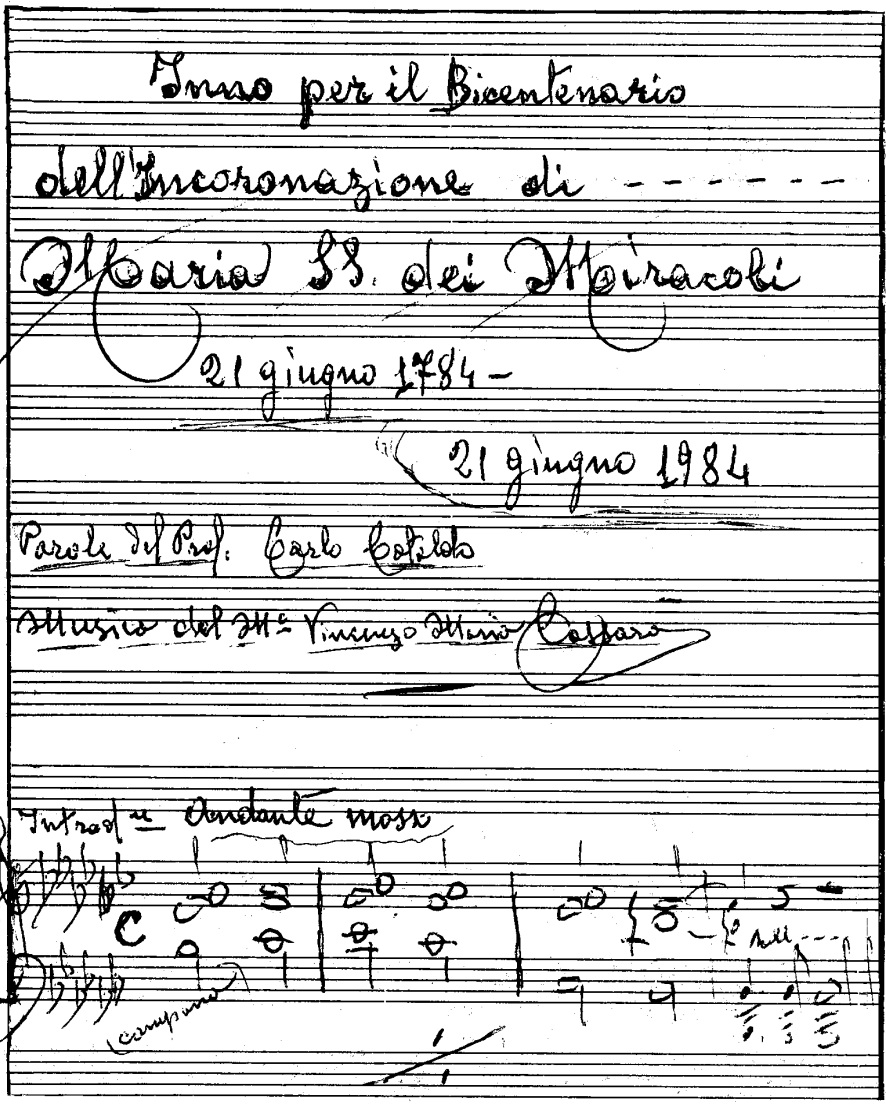 Inno per il Bicentenario
dell'Incoronazione di - - - - - -
Maria SS. dei Miracoli
21 giugno 1784 -
21 giugno 1984
Parole del Prof. Carlo Cataldo
Musica del Mº Vincenzo Maria Cassarà
Introdne Andante mosso
C
(campana)